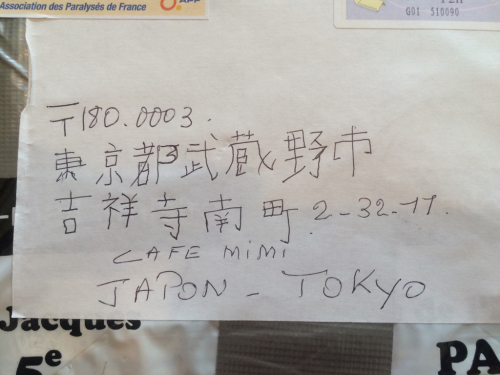 Association des Paralysés de France
APF
G01 510090
〒180.0003.
東京都武蔵野市
吉祥寺南町 2-32-11.
CAFE MIMI
JAPON - TOKYO
Jacques
5e
PA